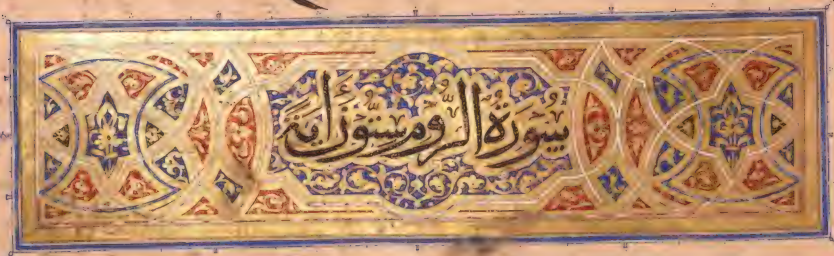 سُورَةُ الرُّومِ سِتُّونَ اٰيَةً